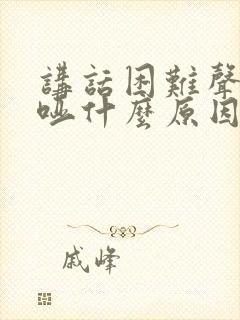 講話困難聲
啞什麼原因
戚峰